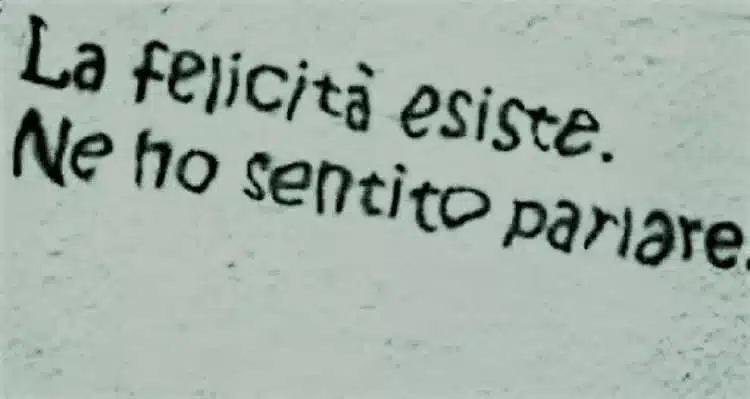 La felicità esiste.
Ne ho sentito parlare.